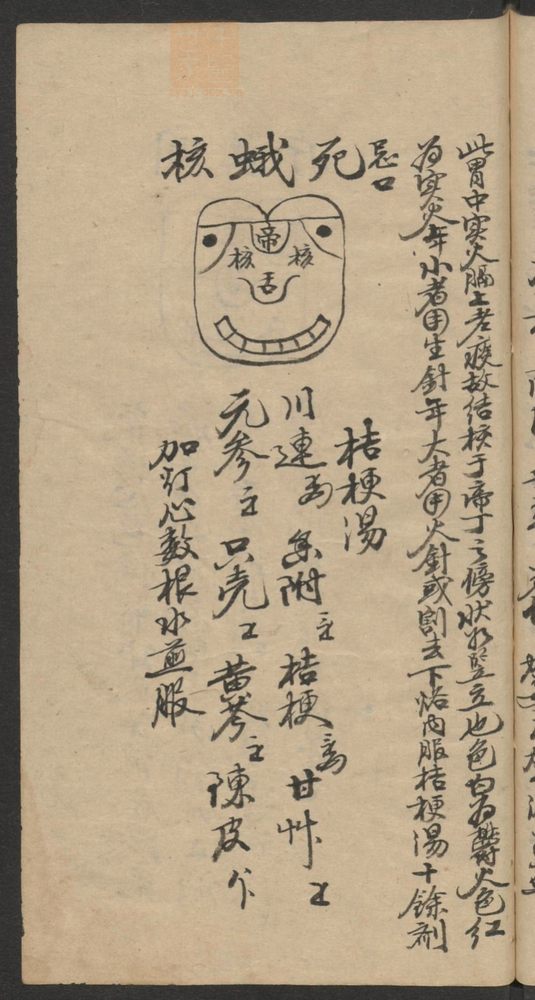 此胃中实火膈上老痰故结核于蒂丁之傍状如竖立也色白为郁火色红
为实火年小者用生針年大者用火針或割去下烙内服桔梗湯十餘剂
忌口
死蛾核
帝
核 核
舌
桔梗湯
川連 香附 桔梗 甘艸
元参 只壳 黄芩 陳皮
加灯心数根水煎服